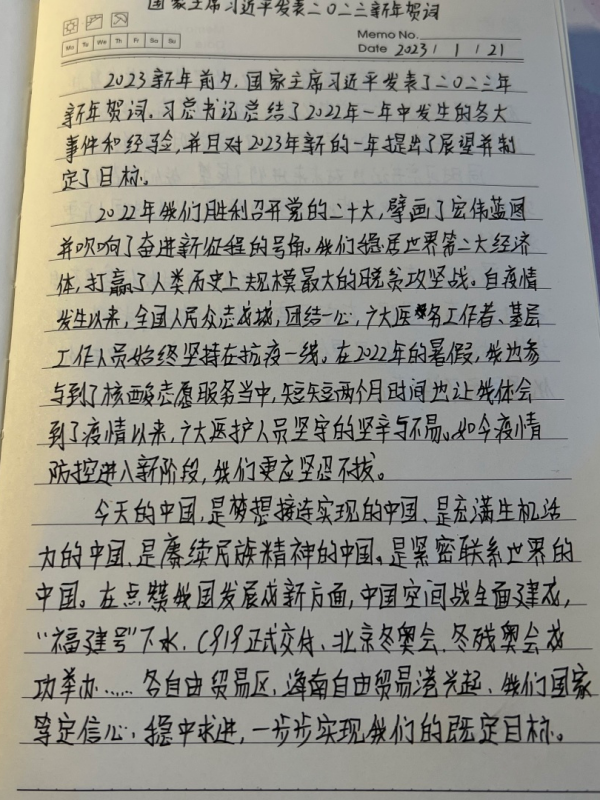 国家主席习近平发表二〇二三新年贺词
Memo No.
Mo Tu We Th Fr Sa Su
Date 2023 / 1 / 21
2023新年前夕,国家主席习近平发表了二〇二三年
新年贺词。习总书记总结了2022年一年中发生的各大
事件和经验,并且对2023年新的一年提出了展望并制
定了目标。
2022年我们胜利召开党的二十大,擘画了宏伟蓝图
并吹响了奋进新征程的号角。我们稳居世界第二大经济
体,打赢了人类历史上规模最大的脱贫攻坚战。自疫情
发生以来,全国人民众志成城,团结一心,广大医务工作者、基层
工作人员始终坚持在抗疫一线。在2022年的暑假,我也参
与到了核酸志愿服务当中,短短两个月时间也让我体会
到了疫情以来,广大医护人员坚守的坚辛与不易。如今疫情
防控进入新阶段,我们更应坚忍不拔。
今天的中国,是梦想接连实现的中国、是充满生机活
力的中国、是赓续民族精神的中国。是紧密联系世界的
中国。在点赞我国发展成新方面,中国空间战全面建成,
“福建号”下水、C919正式交付、北京冬奥会、冬残奥会成
功举办……各自由贸易区,海南自由贸易港兴起、我们国家
笃定信心、稳中求进,一步步实现我们的既定目标。